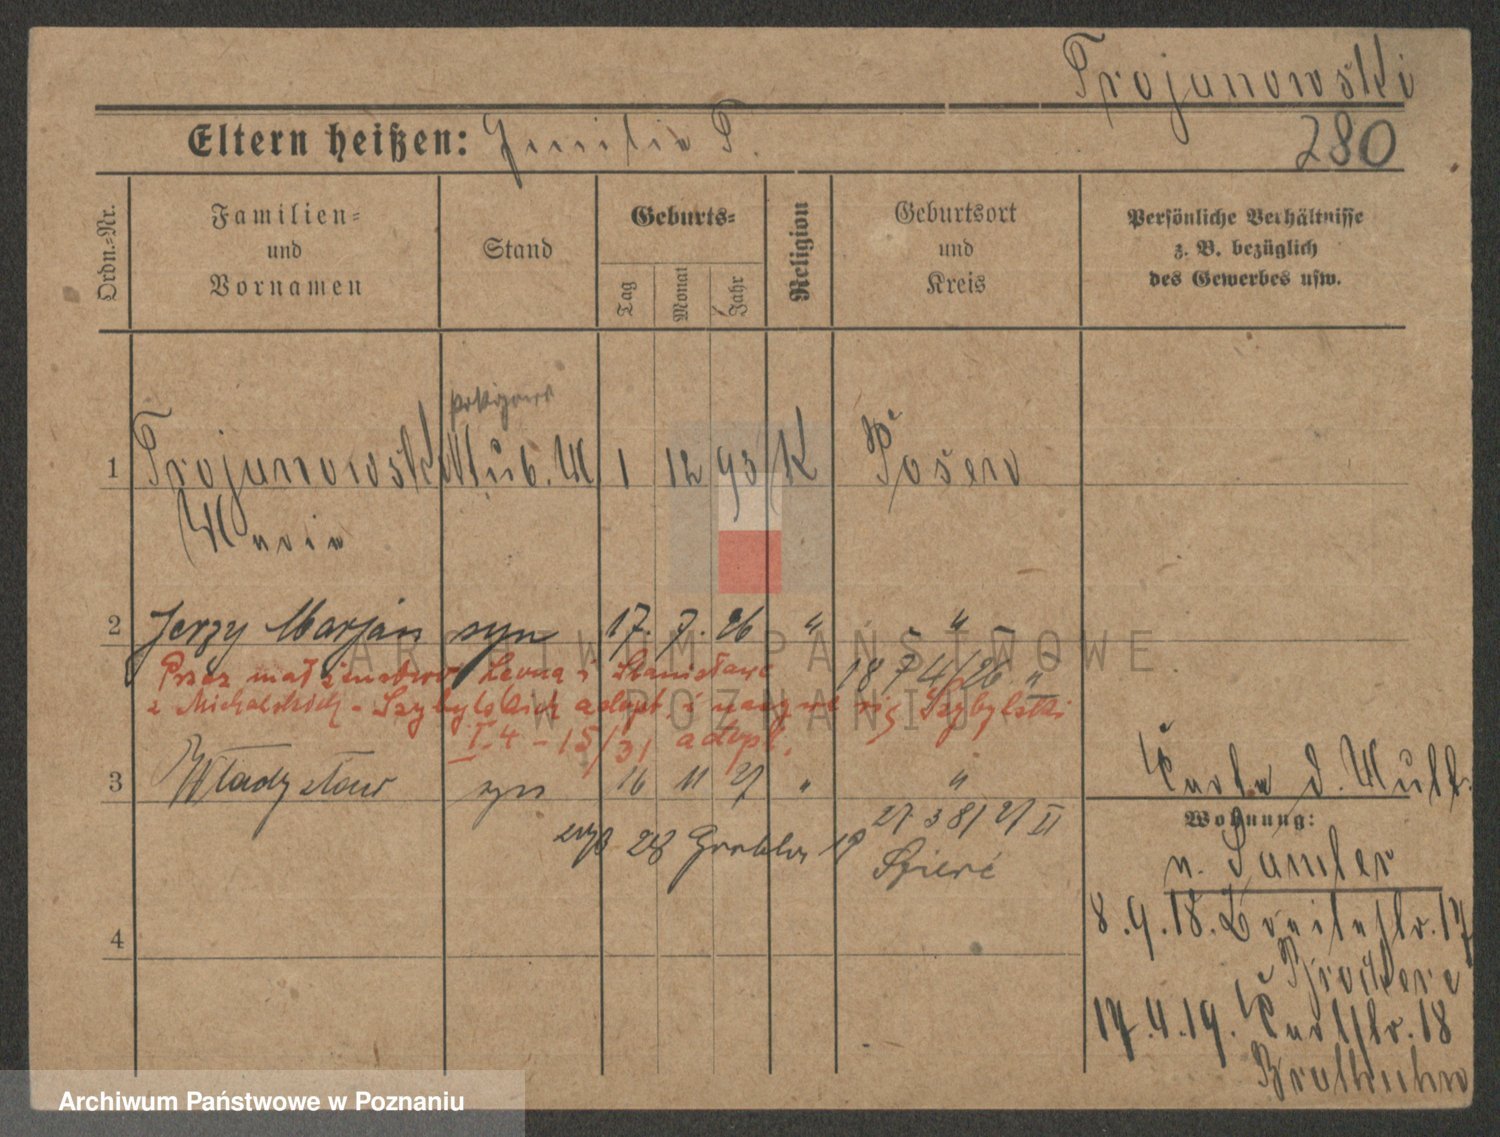 Trojanowski
280
Eltern heißen: Emilie T.
Ordn.-Nr.
Familien-
und
Vornamen
Stand
Geburts-
Tag
Monat
Jahr
Religion
Geburtsort
und
Kreis
Persönliche Verhältnisse
z. B. bezüglich
des Gewerbes usw.
1 Trojanowski 1 12 93 K Posen
Maria
2 Jerzy Marjan syn 17. 7. 26 " "
Przez małżeństwo Leona i Stanisławę 18 74/26
z Michalskich - Szybylskich adopt. i nazywa się Szybylski
I. 4 - 15/31 adopt.
3 Władysław syn 16 11 27 " "
27 38/27 II
28 Grobla 19
Wohnung:
n.
8.9.18. Breitestr. 17
17.4.19. 18
4
ARCHIWUM PAŃSTWOWE
W POZNANIU
Archiwum Państwowe w Poznaniu